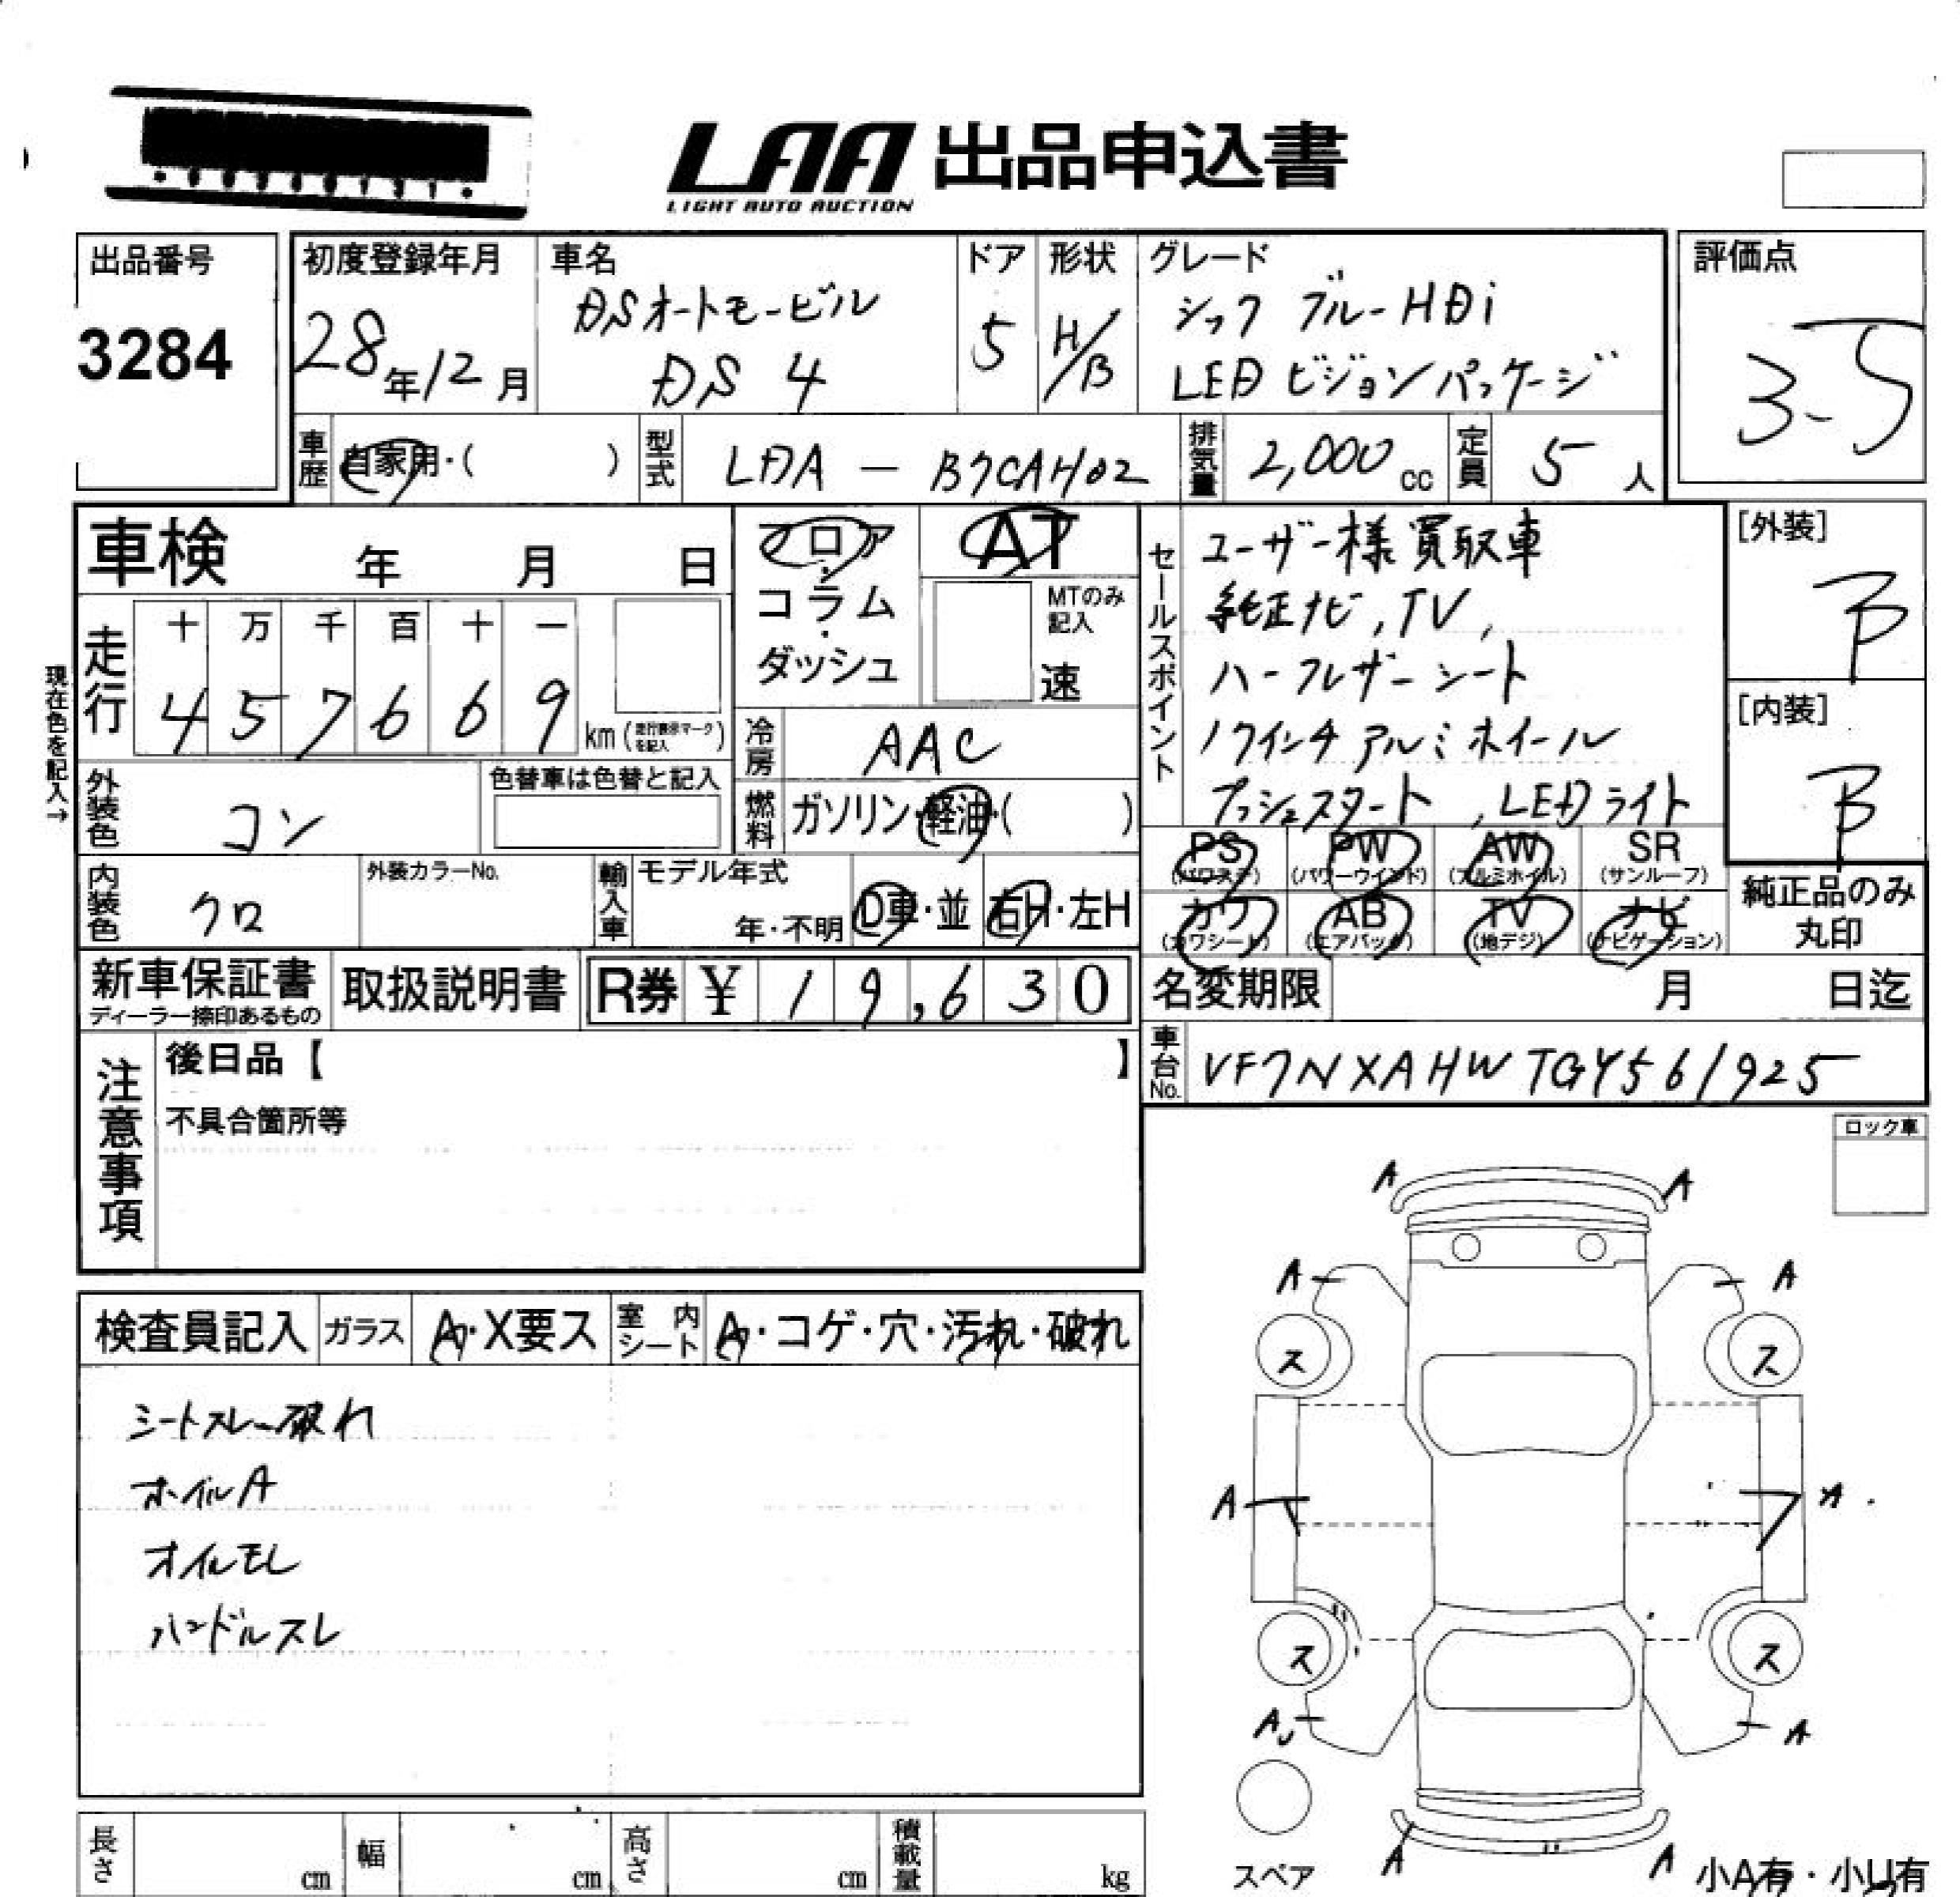 LAA 出品申込書
LIGHT AUTO AUCTION
出品番号
3284
初度登録年月
28年12月
車名
DSオートモービル
DS 4
ドア
5
形状
H/B
グレード
シック ブルーHDi
LED ビジョンパッケージ
評価点
3.5
車歴
自家用・( )
型式
LDA - B7CAH02
排気量
2,000 cc
定員
5 人
車検 年 月 日
フロア・
コラム・
ダッシュ
AT
MTのみ
記入
速
セールスポイント
ユーザー様買取車
純正ナビ, TV,
ハーフレザーシート
17インチアルミホイール
プッシュスタート, LEDライト
[外装]
B
[内装]
B
現在色を記入→
走行
十 万 千 百 十 一
4 5 7 6 6 9
km(走行表示マークを記入)
冷房
AAC
燃料
ガソリン・軽油・( )
外装色
コン
色替車は色替と記入
PS
(パワステ)
PW
(パワーウインド)
AW
(アルミホイル)
SR
(サンルーフ)
カワ
(カワシート)
AB
(エアバック)
TV
(地デジ)
ナビ
(ナビゲーション)
純正品のみ
丸印
内装色
クロ
外装カラーNo.
輸入車
モデル年式
年・不明
D車・並
右H・左H
新車保証書
ディーラー捺印あるもの
取扱説明書
R券 ¥ 19,630
名変期限 月 日迄
車台No.
VF7NXAHWTGY561925
注意事項
後日品【 】
不具合箇所等
ロック車
検査員記入
ガラス
A・X要ス
室内シート
A・コゲ・穴・汚れ・破れ
シートスレー破れ
ホイルA
オイルモレ
ハンドルスレ
A A
A A
ス ス
A A
ス ス
A A
A A
スペア
小A有・小U有
長さ cm
幅 cm
高さ cm
積載量 kg